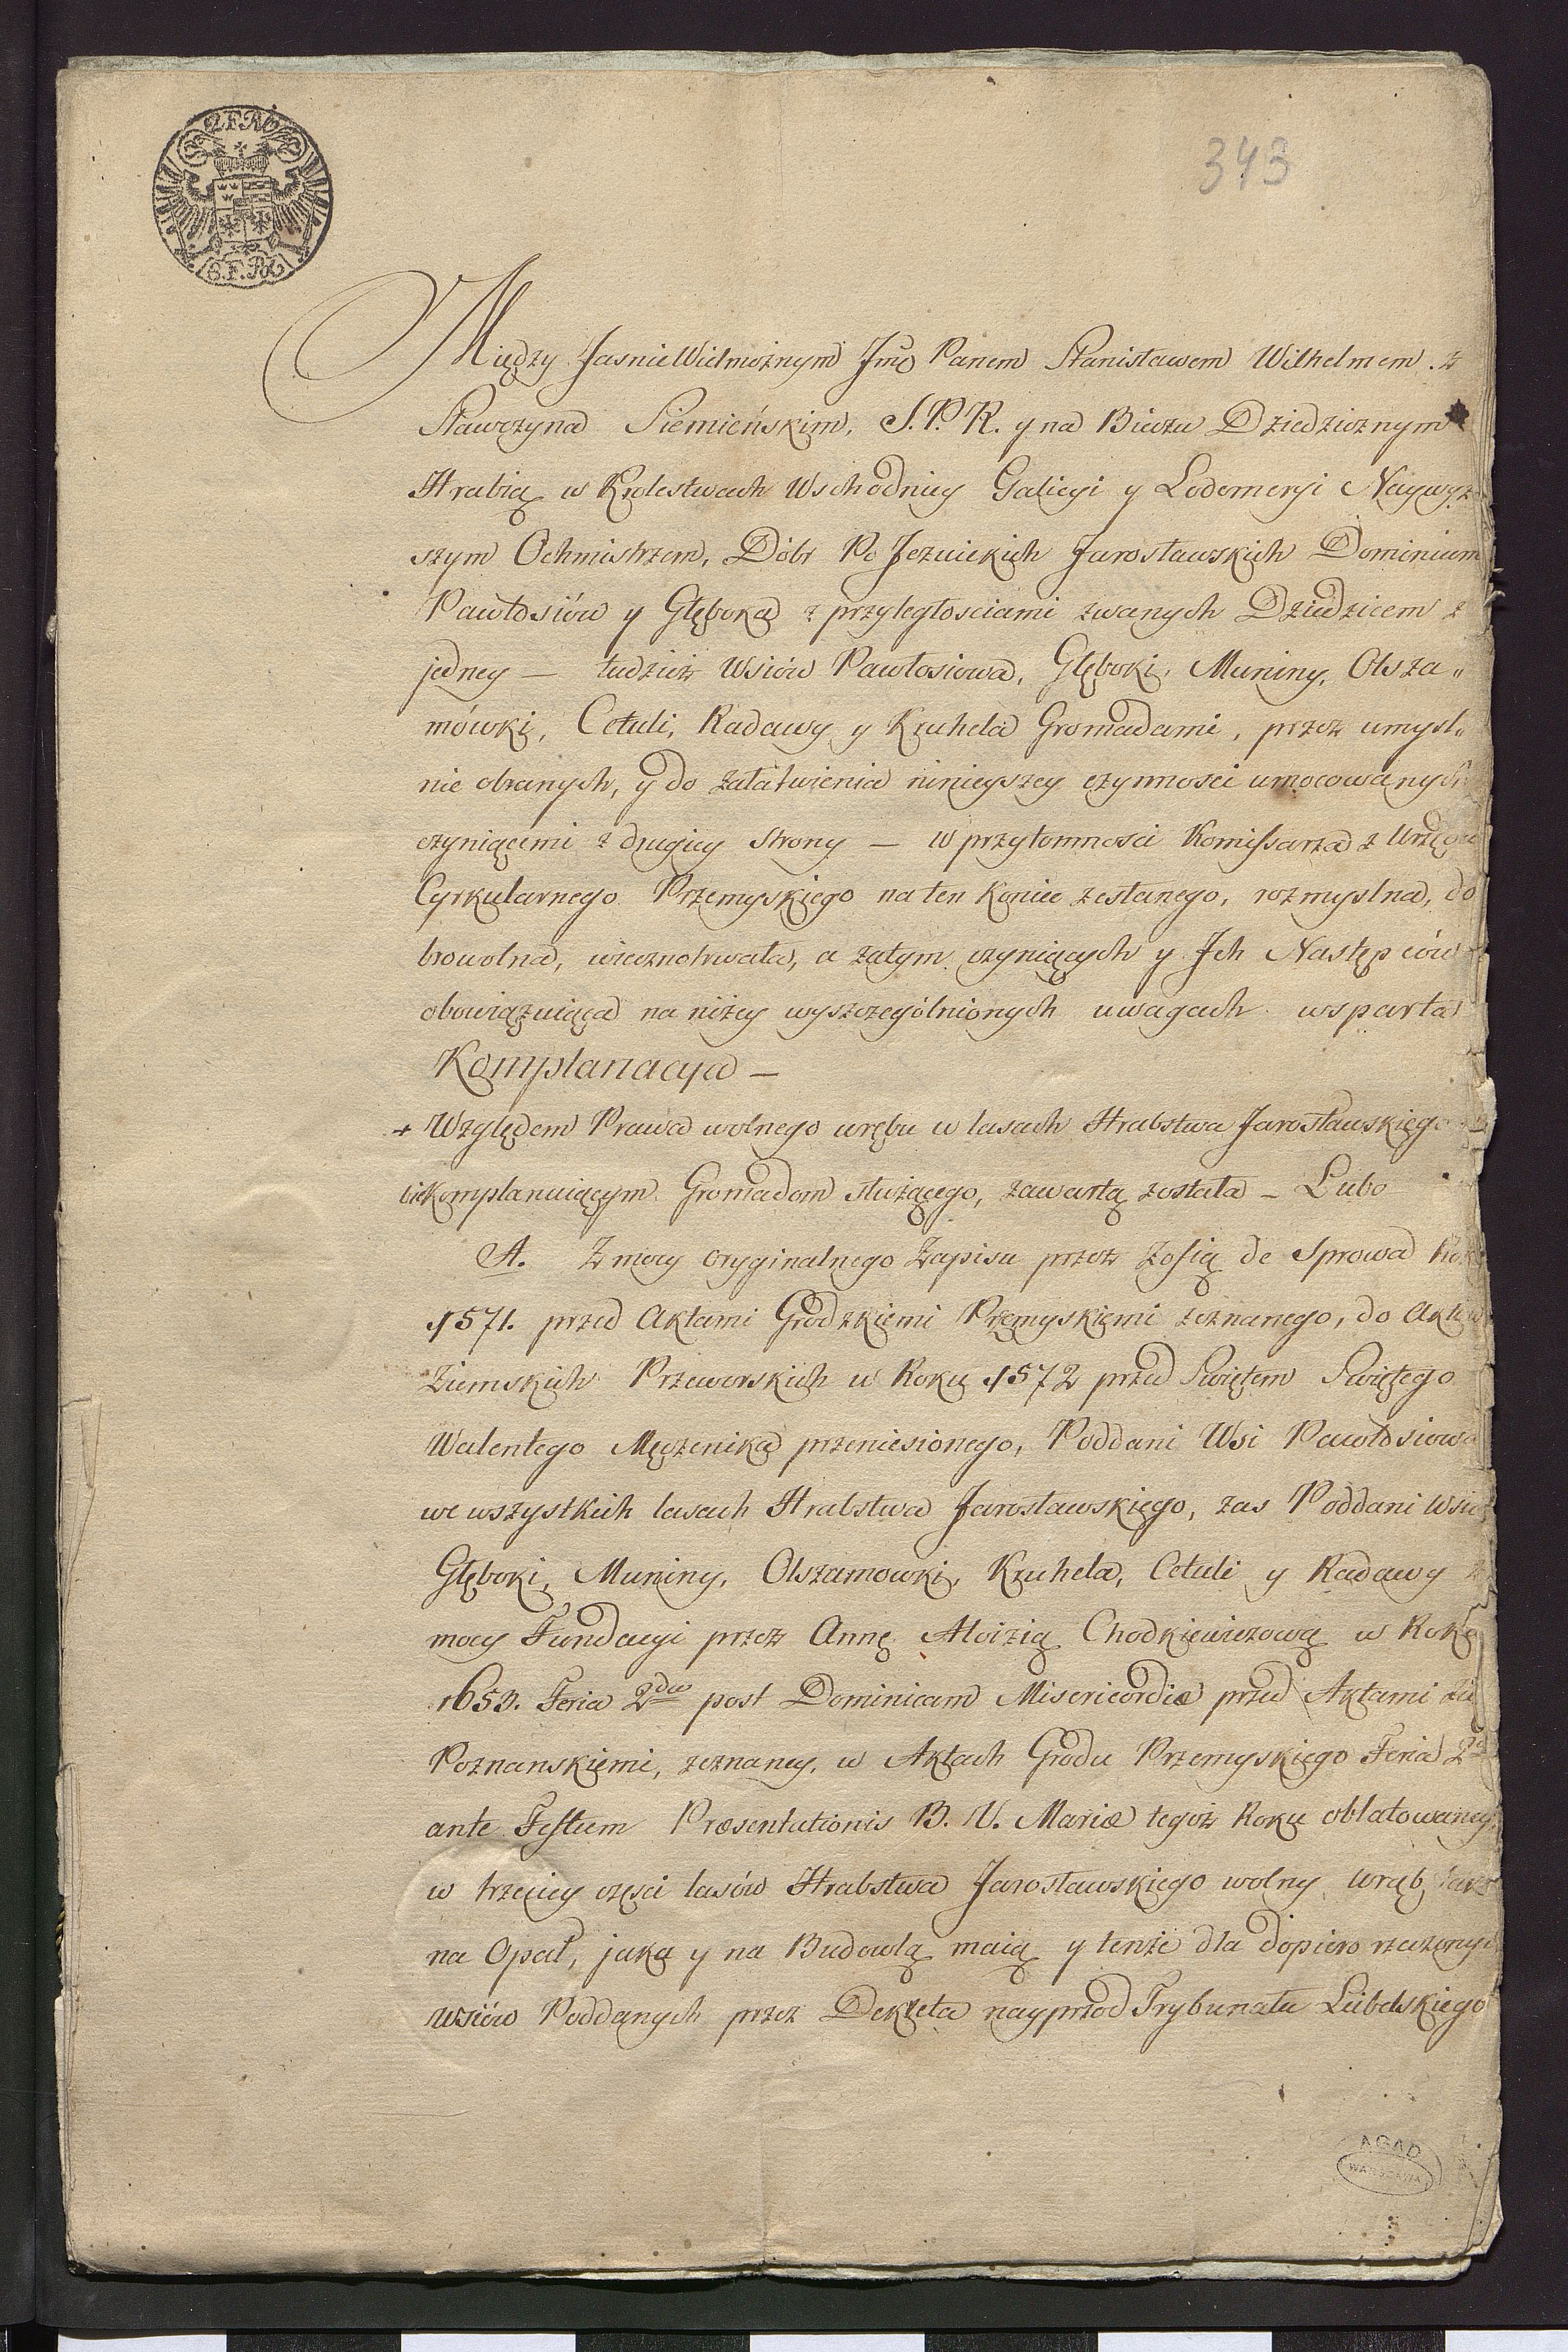 343
Między JasnieWielmożnym Jmō Panem Stanisławem Wilhelmem z
Sławczyna Siemieńskim, S.P.R. y na Bieczu Dziedzicznym
Hrabią w Krolestwach Wschodniey Galicyi y Lodomeryi Naywyż
szym Ochmistrzem, Dóbr Po Jezuickich Jarosławskich Dominium
Pawłosiów y Głęboka z przyległosciami zwanych Dziedzicem z
jedney — tudzież Wsiów Pawłosiowa, Głęboki, Muniny, Olsza„
mówki, Cetuli, Radawy y Kruhela Gromadami, przez umysl„
nie obranych, y do załatwienia ninieyszey czynnosci umocowanych
czyniącemi z drugiey strony — w przytomnosci Komissarza z Urzędu
Cyrkularnego Przemyskiego na ten koniec zesłanego, rozmyslna, do
browolna, wiecznotrwała, a zatym czyniących y Jch Następców
obowiązuiąca na niżey wyszczególnionych uwagach wsparta
Komplanacya —
+ Względem Prawa wolnego wrębu w lasach Hrabstwa Jarosławskiego
komplanuiącym Gromadom służącego, zawartą została — Lubo
A. Z mocy oryginalnego Zapisu przez Zofią de Sprowa Roku
1571. przed Aktami Grodzkiemi Przemyskiemi zeznanego, do Aktow
Ziemskich Przeworskich w Roku 1572 przed Swiętem Swiętego
Walentego Męczenika przeniesionego, Poddani Wsi Pawłosiowa
we wszystkich lasach Hrabstwa Jarosławskiego, zas Poddani Wsiow
Głęboki, Muniny, Olszamowki, Kruhela, Cetuli y Radawy z
mocy Fundacyi przez Annę Aloizią Chodkiewiczową w Roku
1653. Feria 2da post Dominicam Misericordiæ przed Aktami
Poznanskiemi, zeznaney, w Aktach Grodu Przemyskiego Feria 2da
ante Festum Præsentationis B. V. Mariæ tegoż Roku oblatowaney,
w trzeciey częsci lasów Hrabstwa Jarosławskiego wolny wrąb tako
na Opał, jako y na Budowlą maią y tenże dla dopiero rzeczonych
wsiów Poddanych przez Dekreta nayprzod Trybunału Lubelskiego
AGAD
WARSZAWA